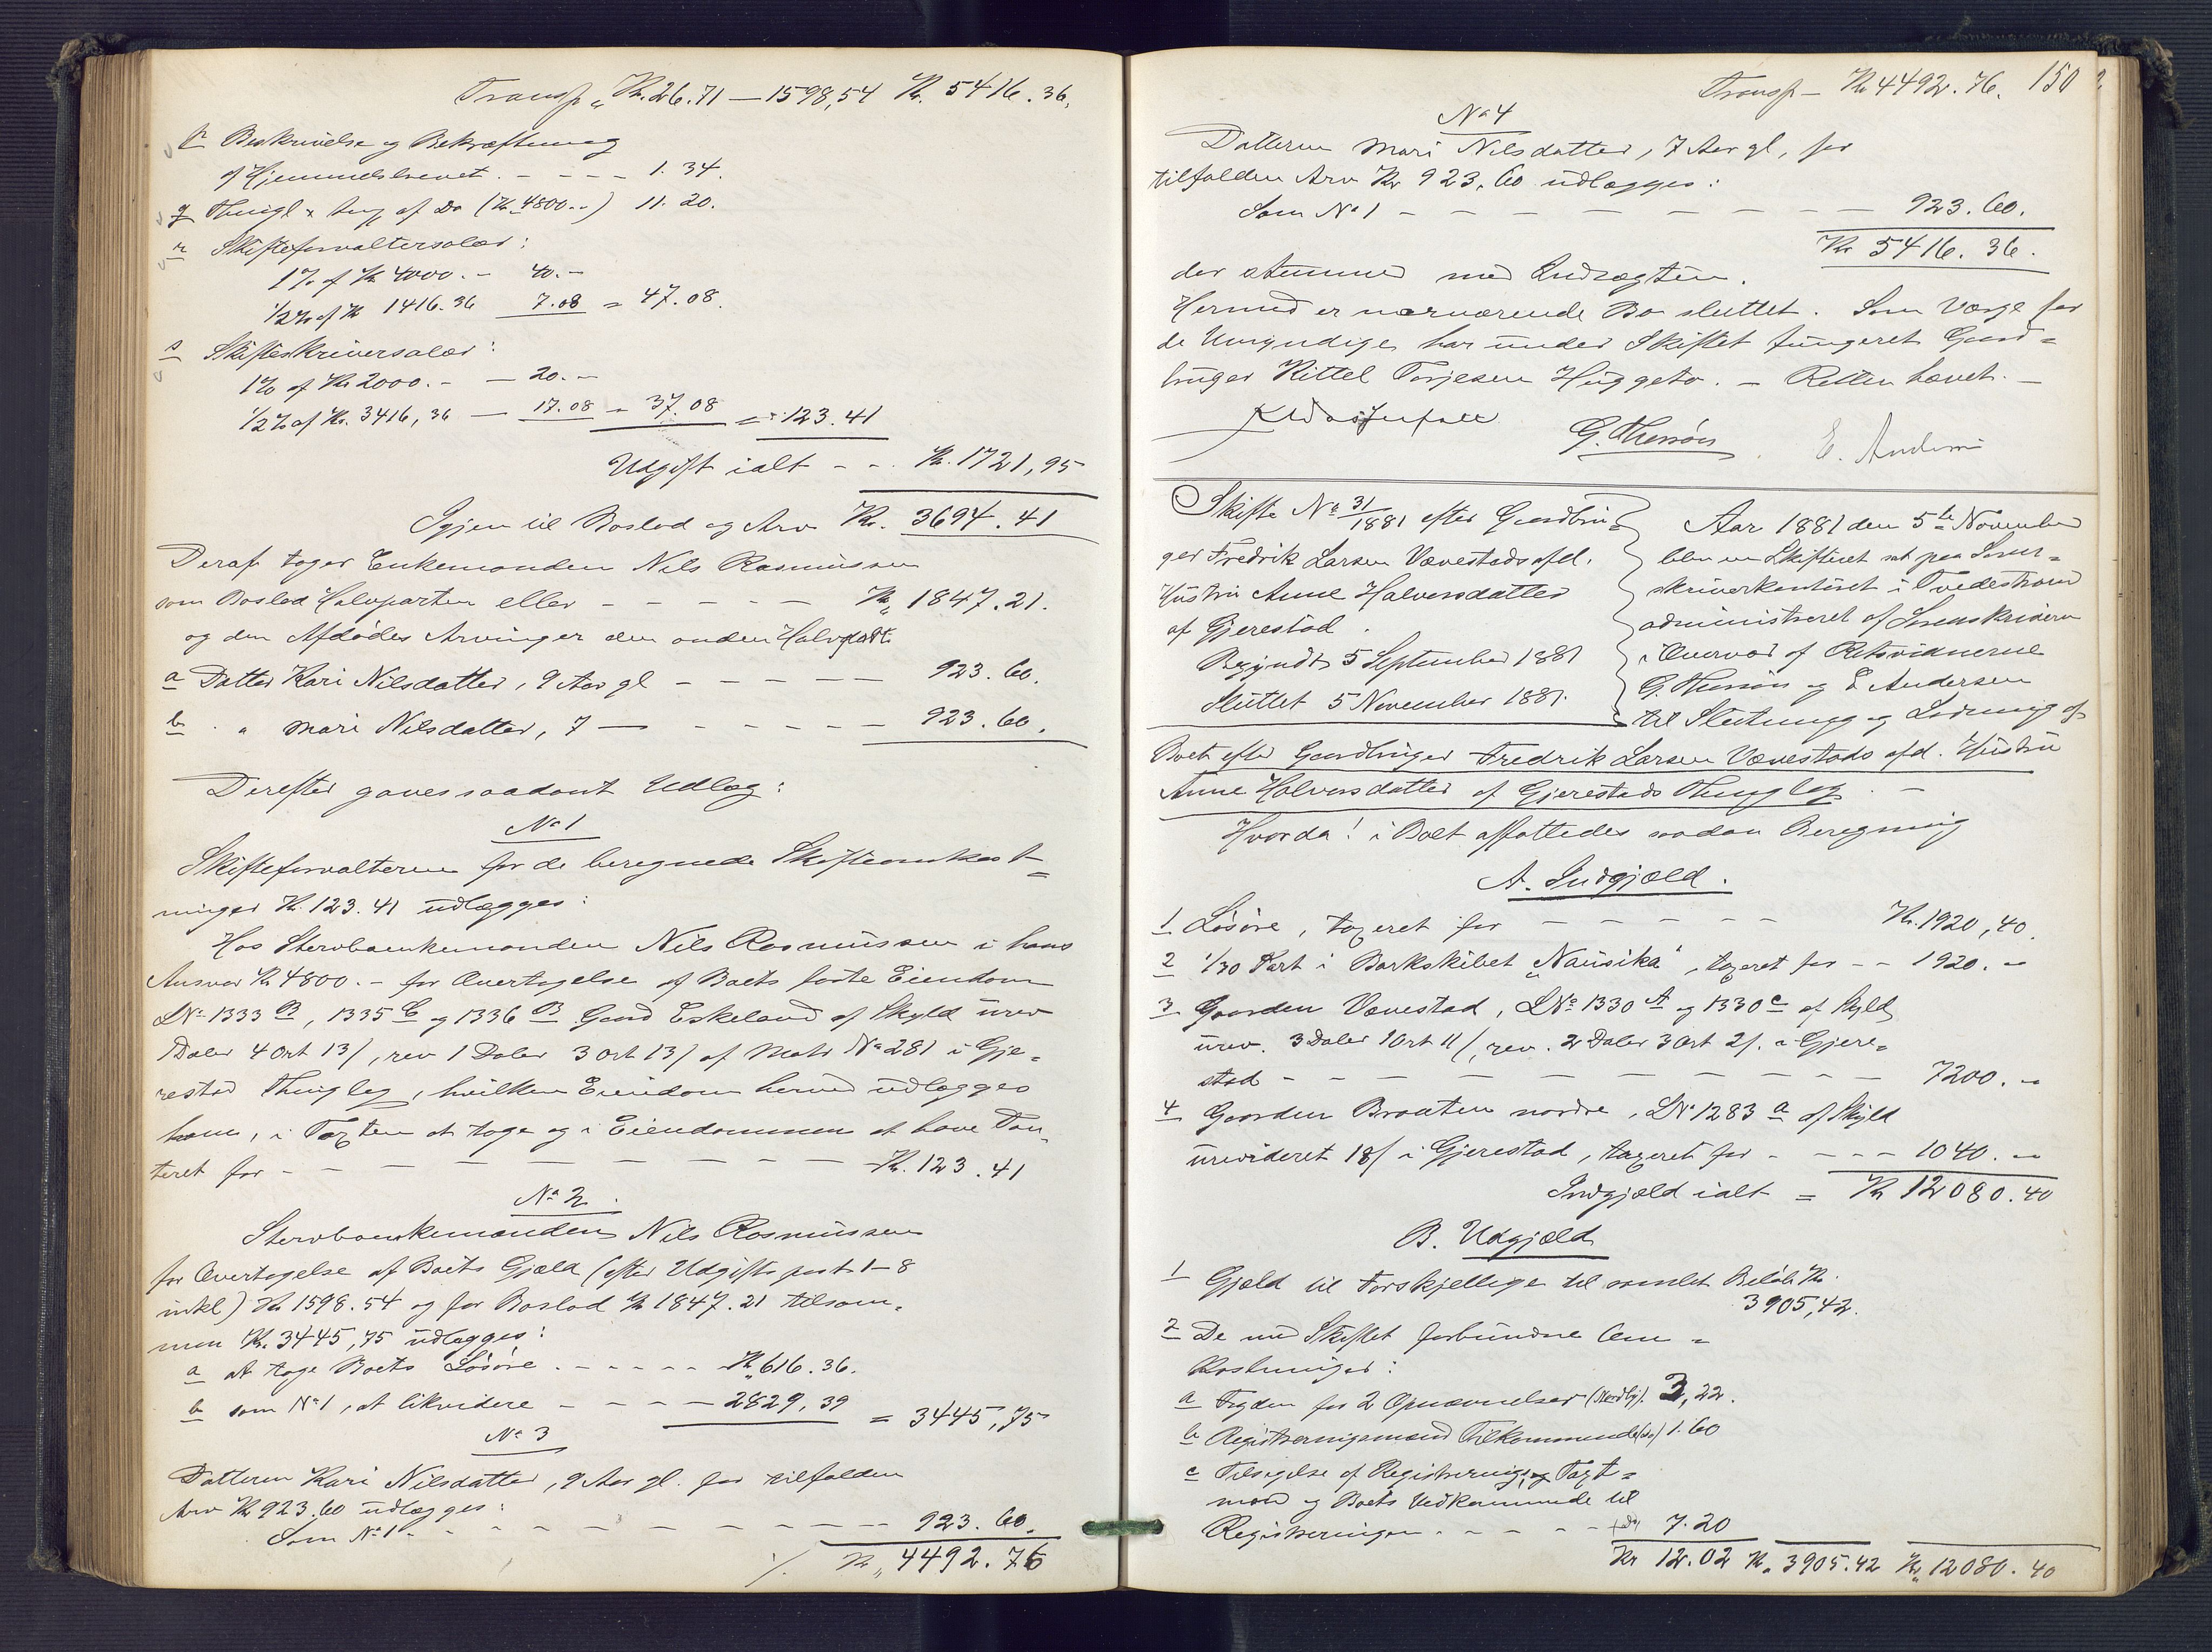 Transp. Kr. 26.71 — 1598,54 Kr. 5416.36.
p Beskrivelse og Bekræftning
af Hjemmelsbrevet. - - - - 1.34.
q Thingl. af Do (Kr. 4800..) 11.20.
r Skifteforvaltersalær:
1% af Kr 4000.- 40.-
1/2% af Kr 1416.36 7.08 = 47.08.
s Skifteskriversalær:
1% af Kr. 2000.- - 20.-
1/2% af Kr. 3416,36 — 17.08 = 37.08 = 123.41
Udgift ialt - - . Kr. 1721,95
Igjen til Boslod og Arv Kr. 3694.41
Deraf tager Enkemanden Nils Rasmussen
som Boslod Halvparten eller - - - - - Kr. 1847.21.
og den Afdødes Arvinger den anden Halvpart:
a Datter Kari Nilsdatter, 9 Aar gl - - - - - 923.60.
b . " Mari Nilsdatter, 7 — - - - - - 923.60.
Derefter gaves saadant Udlæg:
No 1
Skifteforvalteren for de beregnede Skifteomkost=
ninger Kr. 123.41 udlægges:
Hos Stervboenkemanden Nils Rasmussen i hans
Ansvar Kr 4800.- for Overtagelse af Boets faste Eiendom
LNo 1333 B, 1335 C og 1336 B Gaard Eskeland af Skyld urev
Daler 4 Ort 13/, rev 1 Daler 3 Ort 13/ af Matr No 281 i Gje=
restad Thinglag, hvilken Eiendom herved udlægges
ham, i Taxten at tage og i Eiendommen at have Pan=
teret for - - - - - - - - Kr. 123.41
No 2.
Stervboenkemanden Nils Rasmussen
for Overtagelse af Boets Gjæld (efter Udgifts post 1-8
inkl) Kr 1598.54 og for Boslod Kr 1847.21 tilsam=
men Kr. 3445,75 udlægges:
a at tage Boets Løsøre . - - - - - Kr. 616.36.
b som No 1, at likvidere - - - - 2829,39 = 3445,75
No 3
Datteren Kari Nilsdatter, 9 Aar gl. for tilfalden
Arv Kr 923.60 udlægges:
Som No 1 - - - - - - - - - 923.60.
./. Kr. 4492.76
Transp — Kr 4492.76. 150
No 4
Datteren Mari Nilsdatter, 7 Aar gl, for
tilfalden Arv Kr 923.60 udlægges:
Som No 1 - - - - - - - - 923.60.
Kr 5416.36.
der stemmer med Indtægten.
Hermed er nærværende Bo sluttet. Som Værge for
de Umyndige har under Skiftet fungeret Gaard=
bruger Kittel Torjesen Huggeto. - Retten hævet. -
G. Thersøn E. Andersen
Skifte No 31/1881 efter Gaardbru=
ger Fredrik Larsen Vævestads afd.
Hustru Anne Halvorsdatter
af Gjerestad.
Begyndt 5 September 1881
Sluttet 5 November 1881.
Aar 1881 den 5te November
blev en Skifteret sat paa Soren=
skriverkontoret i Tvedestrand
administreret af Sorenskriveren
i Overvær af Retsvidnerne
G. Thersøn og E. Andersen
til Slutning og Lodning af
Boet efter Gaardbruger Fredrik Larsen Vævestads afd. Hustru
Anne Halvorsdatter af Gjerestads Thinglag. -
Hvorda! i Boet affattedes saadan Beregning
A. Indgjæld.
1 Løsøre, taxeret for - - - - - Kr. 1920,40.
2 1/30 Part i Barkskibet "Nausika", taxeret for - - 1920.-
3 Gaarden Vævestad, LNo 1330 A og 1330 c af Skyld
urev. 3 Daler 1 Ort 11/, rev. 2 Daler 3 Ort 2/. i Gjere=
stad - - - - - - - - - - 7200.-
4 Gaarden Braaten nordre, LNo 1283 a af Skyld
urevideret 18/ i Gjerestad, taxeret for - - - - 1040.-
Indgjæld ialt = Kr 12080.40
B. Udgjæld
1 Gjæld til Forskjellige til samlet Beløb Kr.
3905,42.
2 De med Skiftet forbundne Om=
kostninger:
a Fogden for 2 Opnævnelser 3,22.
b Registreringsmænd Tilkommende (do) 1.60
c Tilsigelse af Registrerings og Taxt=
mænd og Boets Vedkommende til
Registreringen - - - - - (do) 7.20
Kr 12.02 Kr. 3905.42 Kr. 12080.40